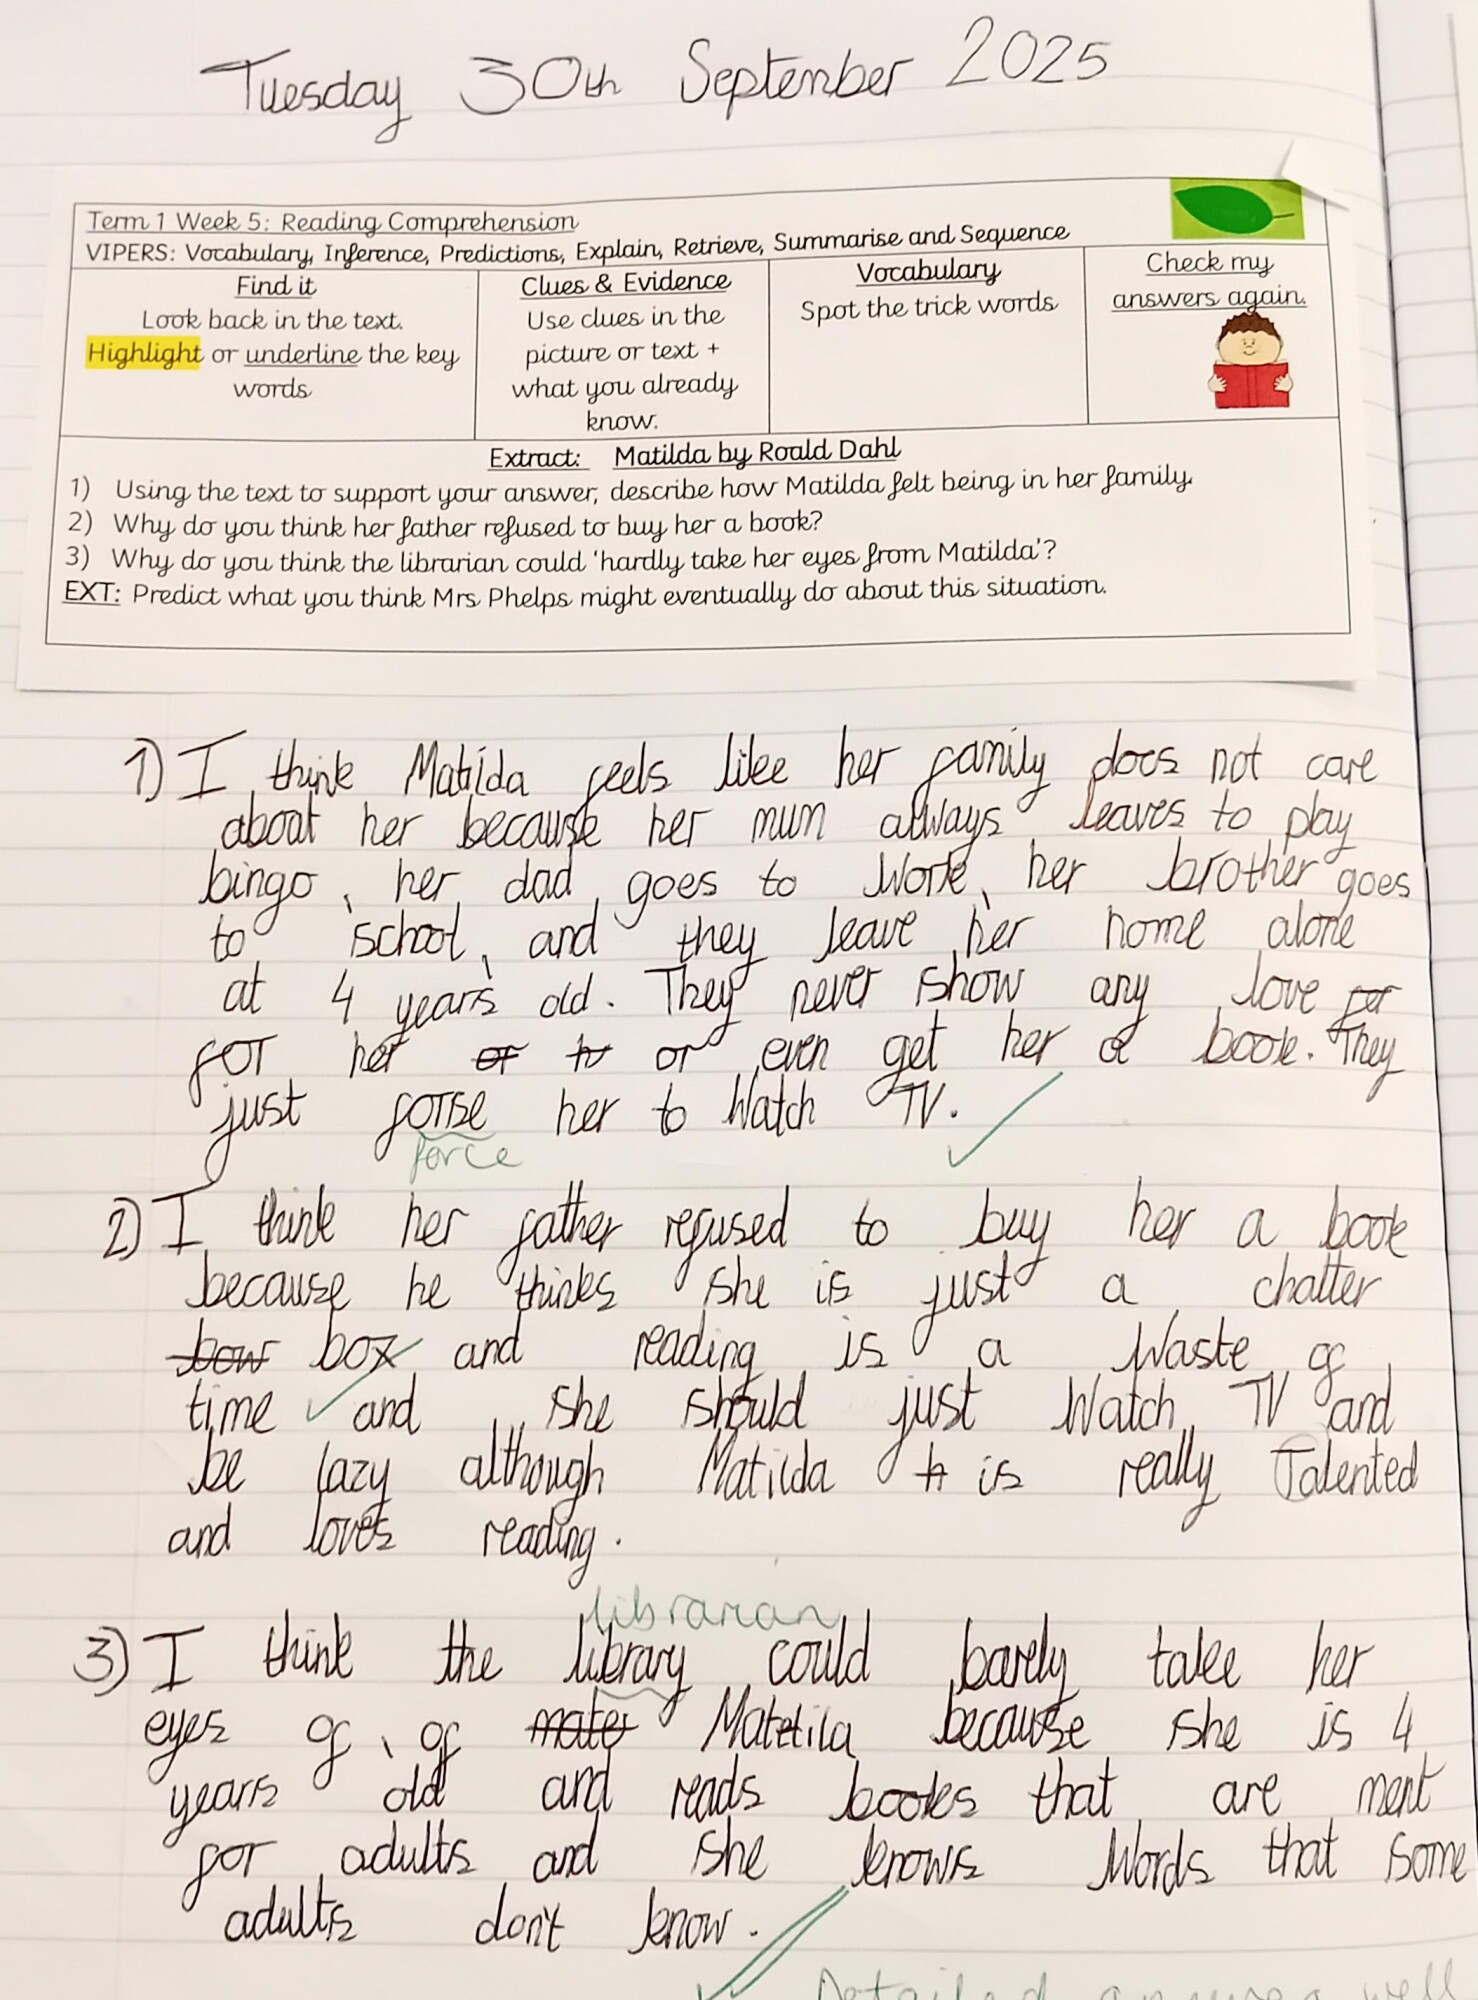 Tuesday 30th September 2025
Term 1 Week 5: Reading Comprehension
VIPERS: Vocabulary, Inference, Predictions, Explain, Retrieve, Summarise and Sequence
Find it
Look back in the text.
Highlight or underline the key
words
Clues & Evidence
Use clues in the
picture or text +
what you already
know.
Vocabulary
Spot the trick words
Check my
answers again.
Extract: Matilda by Roald Dahl
1) Using the text to support your answer, describe how Matilda felt being in her family.
2) Why do you think her father refused to buy her a book?
3) Why do you think the librarian could 'hardly take her eyes from Matilda'?
EXT: Predict what you think Mrs Phelps might eventually do about this situation.
1) I think Matilda feels like her family does not care
about her because her mum always leaves to play
bingo, her dad goes to work, her brother goes
to school, and they leave her home alone
at 4 years old. They never show any love for
for her or to or even get her a book. They
just forse her to watch TV.
force
2) I think her father refused to buy her a book
because he thinks she is just a chatter
bow box and reading is a waste of
time and she should just watch TV and
be lazy although Matilda is really Talented
and loves reading.
librarian
3) I think the library could barely take her
eyes of, of mater Matetila because she is 4
years old and reads books that are ment
for adults and she knows words that some
adults don't know.
Detailed answers well